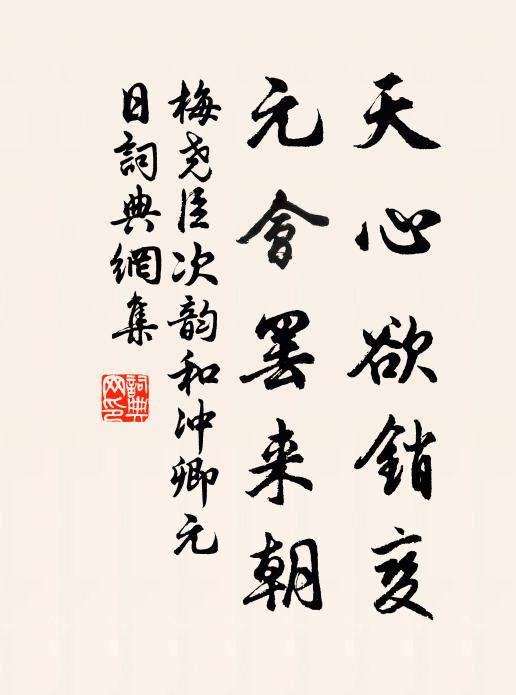 天心欲銷变
元會罢来朝
梅尧臣次韵和冲卿元
日詞典網集
詞典网印